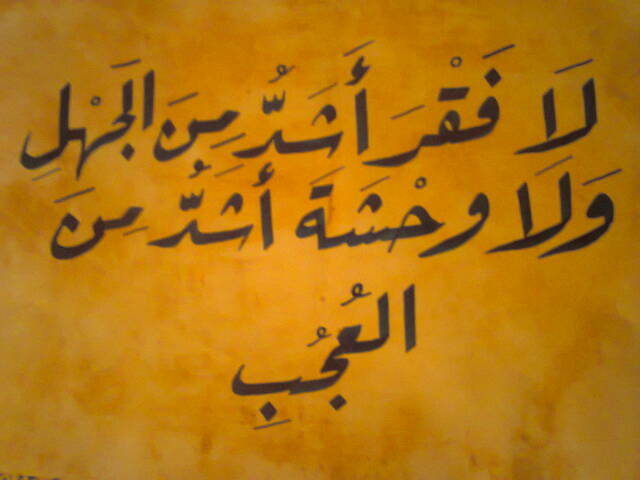 لَا فَقْرَ أَشَدُّ مِنَ الجَهْلِ
وَلَا وحْشَةَ أَشَدُّ مِنَ
العُجُبِ